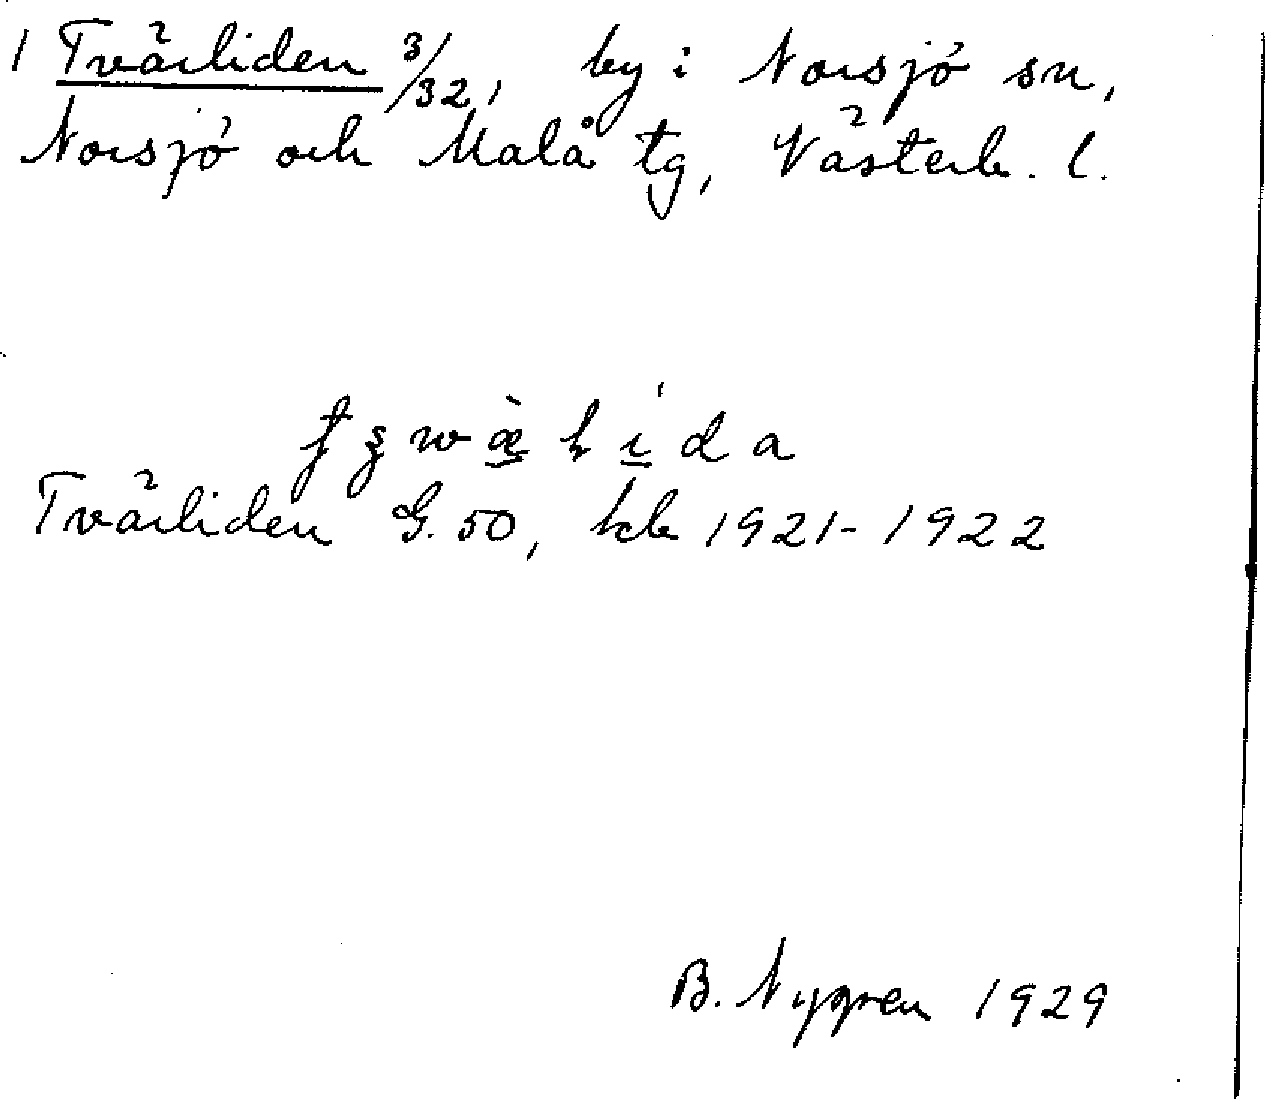 1 Tvärliden 3/32, by i Norsjö sn,
Norsjö och Malå tg, Västerb. l.
Tvärliden G. 50, kb 1921-1922
B. Nygren 1929